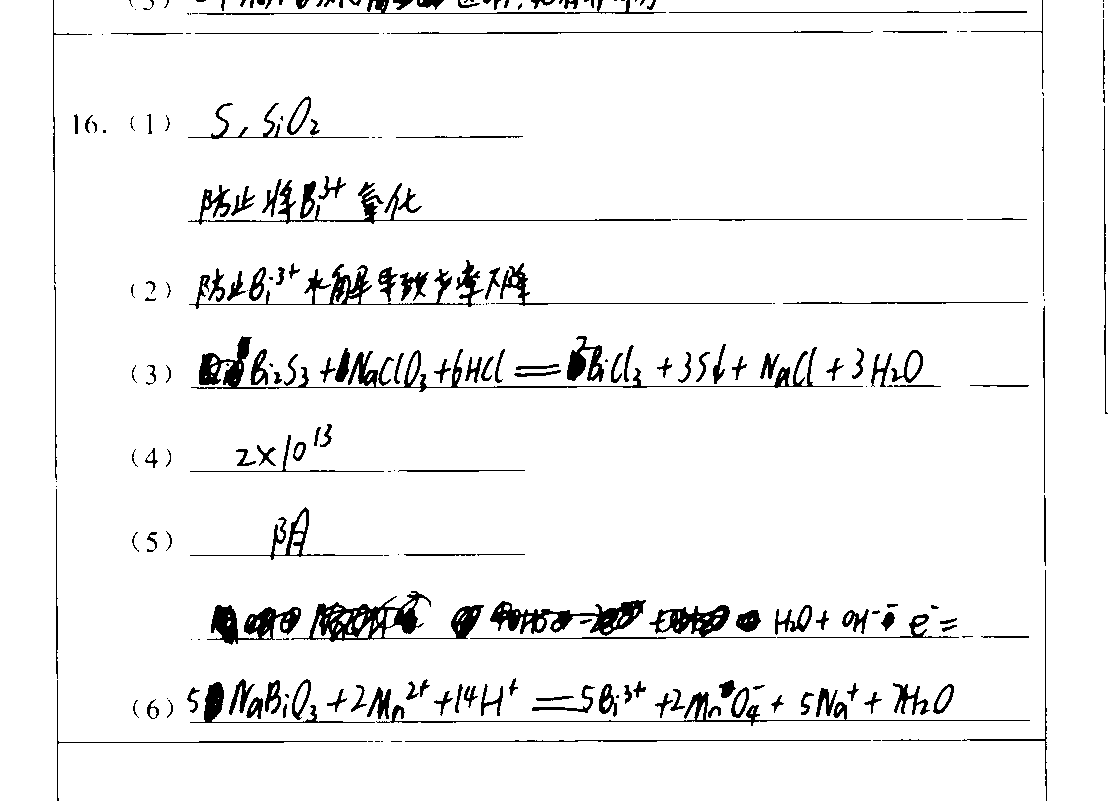 16. (1) S, SiO₂
防止将Bi³⁺氧化
(2) 防止Bi³⁺水解导致产率下降
(3) Bi₂S₃ + NaClO₃ + 6HCl == 2BiCl₃ + 3S↓ + NaCl + 3H₂O
(4) 2×10¹³
(5) 阴
H₂O + OH⁻ e⁻ =
(6) 5NaBiO₃ + 2Mn²⁺ + 14H⁺ == 5Bi³⁺ + 2MnO₄⁻ + 5Na⁺ + 7H₂O